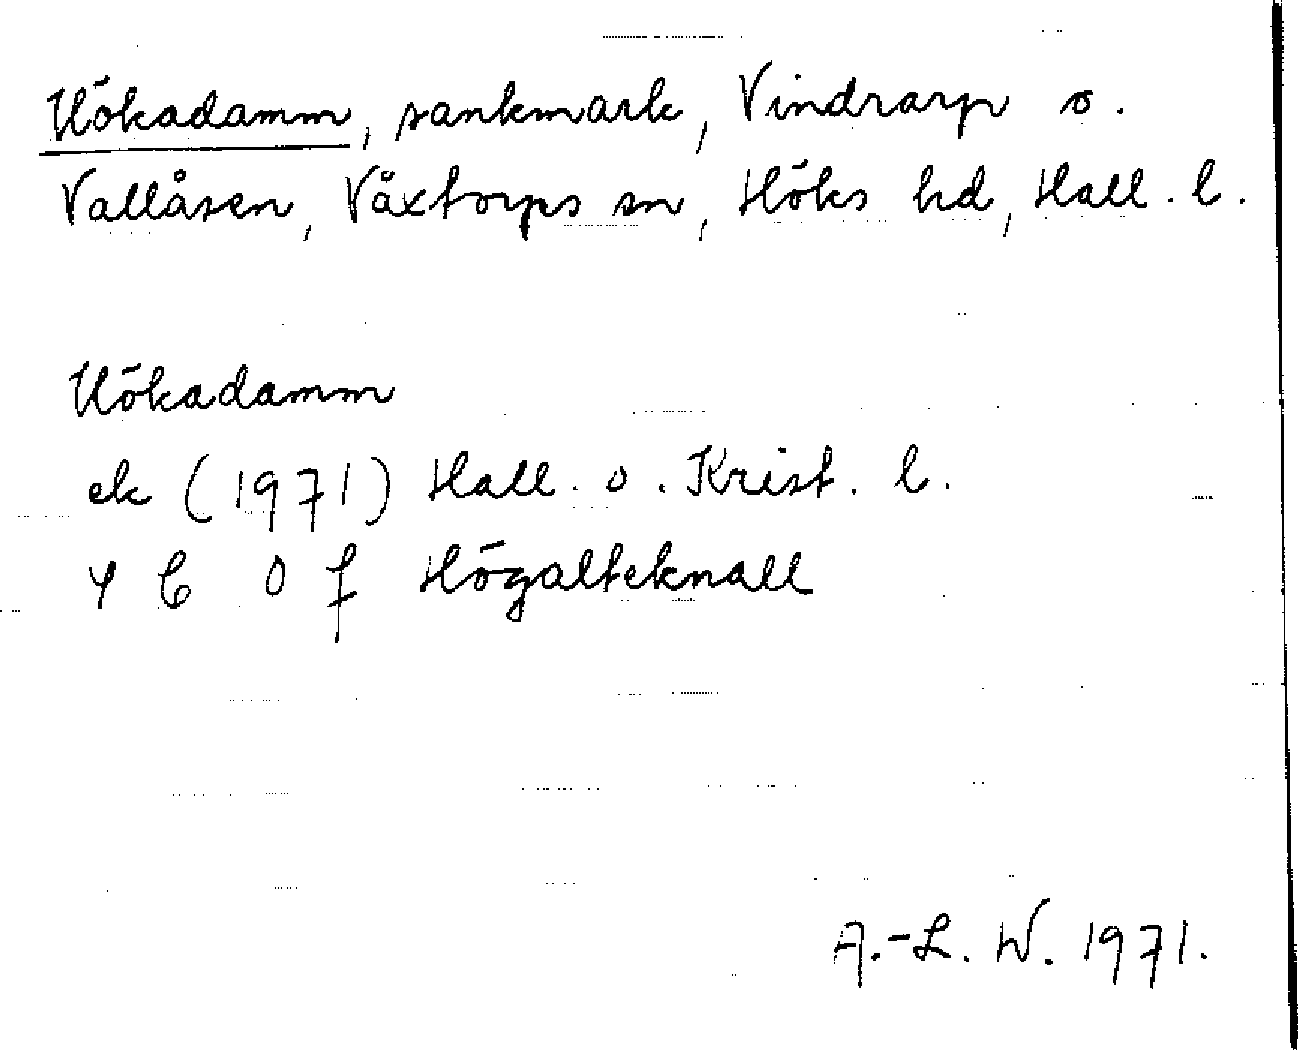 Hökadamm, sankmark, Vindrarp o.
Vallåsen, Våxtorps sn, Höks hd, Hall. l.
Hökadamm
ek (1971) Hall. o. Krist. l.
4 C 0 f Högalteknall
A.-L. W. 1971.